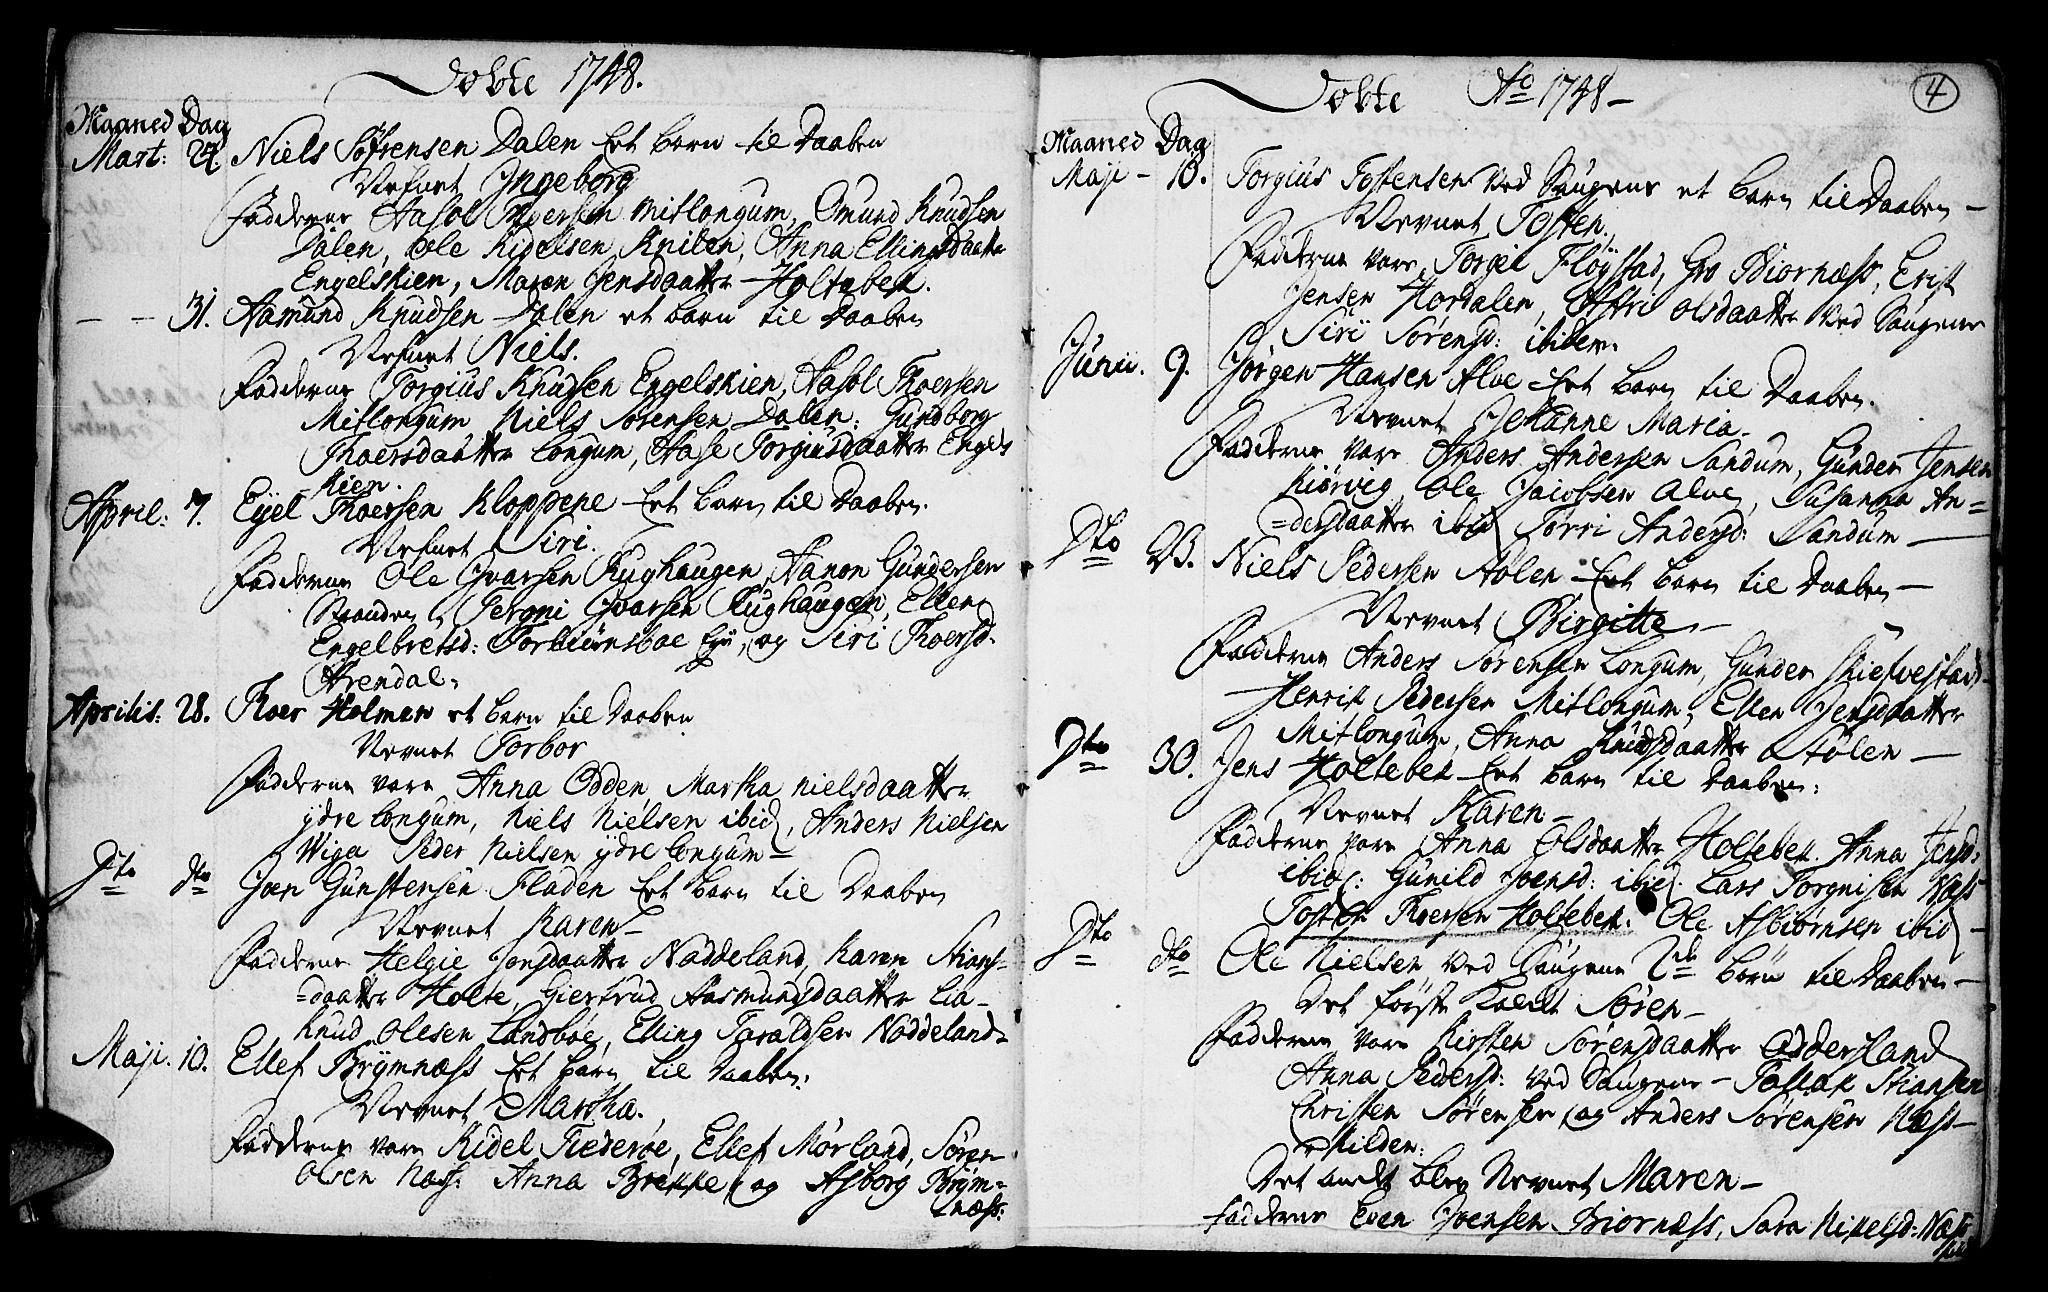 Døbte 1748.
Maaned Dag
Mart: 24. Niels Søfrensen Dalen Eet barn til Daaben
Nefnet Ingeborg
Fadderne Aasol Mitlongum, Omund Knudsen
Dalen, Ole Kidelsen Kniben, Anna Ellingsdaatter
Engelskien, Maren Jensdaatter Holtebek.
— — 31. Aamund Knudsen Dalen et barn til Daaben
Nefnet Niels.
Fadderne Torgius Knudsen Engelskien, Aasol Thoersen
Mitlongum Niels Sørensen Dalen: Gundborg
Thoersdaatter Longum, Aase Torgiusdaatter Engels
Kien.
April: 7. Eyel Thoersen Kloppene Eet barn til Daaben.
Nefnet Siri.
Fadderne Ole Ivarsen Rughaugen, Aanon Gundersen
Tergni Ivarsen Rughaugen, Ellen
Engelbretsd: Torbiørnsboe og Siri Thoersd.
Arendal.
Aprilis: 28. Thoer Holmen et barn til Daaben
Nevnet Torbor
Fadderne vare Anna Odden Martha Nielsdaatter
ydre Longum, Niels Nielsen ibid, Anders Nielsen
Wiga Peder Nielsen ydre Longum—
Dto dto Joen Gunstensen Fladen Eet barn til Daaben
Nevnet Karen—
Fadderne Helgie Jonsdaatter Nøddeland, Karen Stians=
=daatter Holte, Giertrud Aasmundsdaatter Lia—
Knud Olesen Landsbøe, Elling Taraldsen Nøddeland—
Maji. 10. Ellef Brymnæss Eet barn til Daaben.
Nevnet Martha.
Fadderne vare Kidel Tiederøe, Ellef Mørland, Søren
Olsen Næs: Anna Brekke og Asborg Brym=
næss:
Døbte Ao 1748— 4
Maaned Dag
Maji — 10. Torgius Tostensen ved Saugene et barn til Daaben—
Nevnet Tosten.
Fadderne vare Torgei Fløystad, Gro Biornæss, Erik
Jensen Hordalen, Astri Olsdaatter ved Saugene
Siri Sørensd: ibidem.
Junii. 9. Jørgen Hansen Alve Eet barn til Daaben.
Nevnet Johanne Maria—
Fadderne vare Anders Andersen Sandum, Gunder Jensen
Kiørvig, Ole Jacobsen Alve, Susanna An=
=dersdaatter ibid Torri Andersd: Sandum—
Dto 23. Niels Pedersen Stølen Eet barn til Daaben—
Nevnet Birgitte—
Fadderne Anders Sørensen Longum, Gunder Skiefvestad—
Henrik Pedersen Mitlongum, Ellen Jensdaatter
Mitlongum, Anna Knudsdaatter Stølen—
Dto 30. Jens Holtebek Eet barn til Daaben:
Nevnet Karen—
Fadderne vare Anna Olsdaatter Holtebek. Anna Jensd:
ibid: Gunild Joensd: ibid. Lars Torgrisen Næss
Tosten Thoersen Holtebek: Ole Asbiørnsen ibid—
Dto dto Ole Nielsen ved Saugene 2de børn til Daaben—
Det første kaldt Søren—
Fadderne vare Kirsten Sørensdaatter Oddersland
Anna Pedersd: ved Saugene— Tollak Stiansen
Christen Sørensen og Anders Sørensen Næss—
Kilden:
Det andt blev Nevnet Maren—
Fadderne Even Joensen Biornæss, Sara Nikelsd: Næss